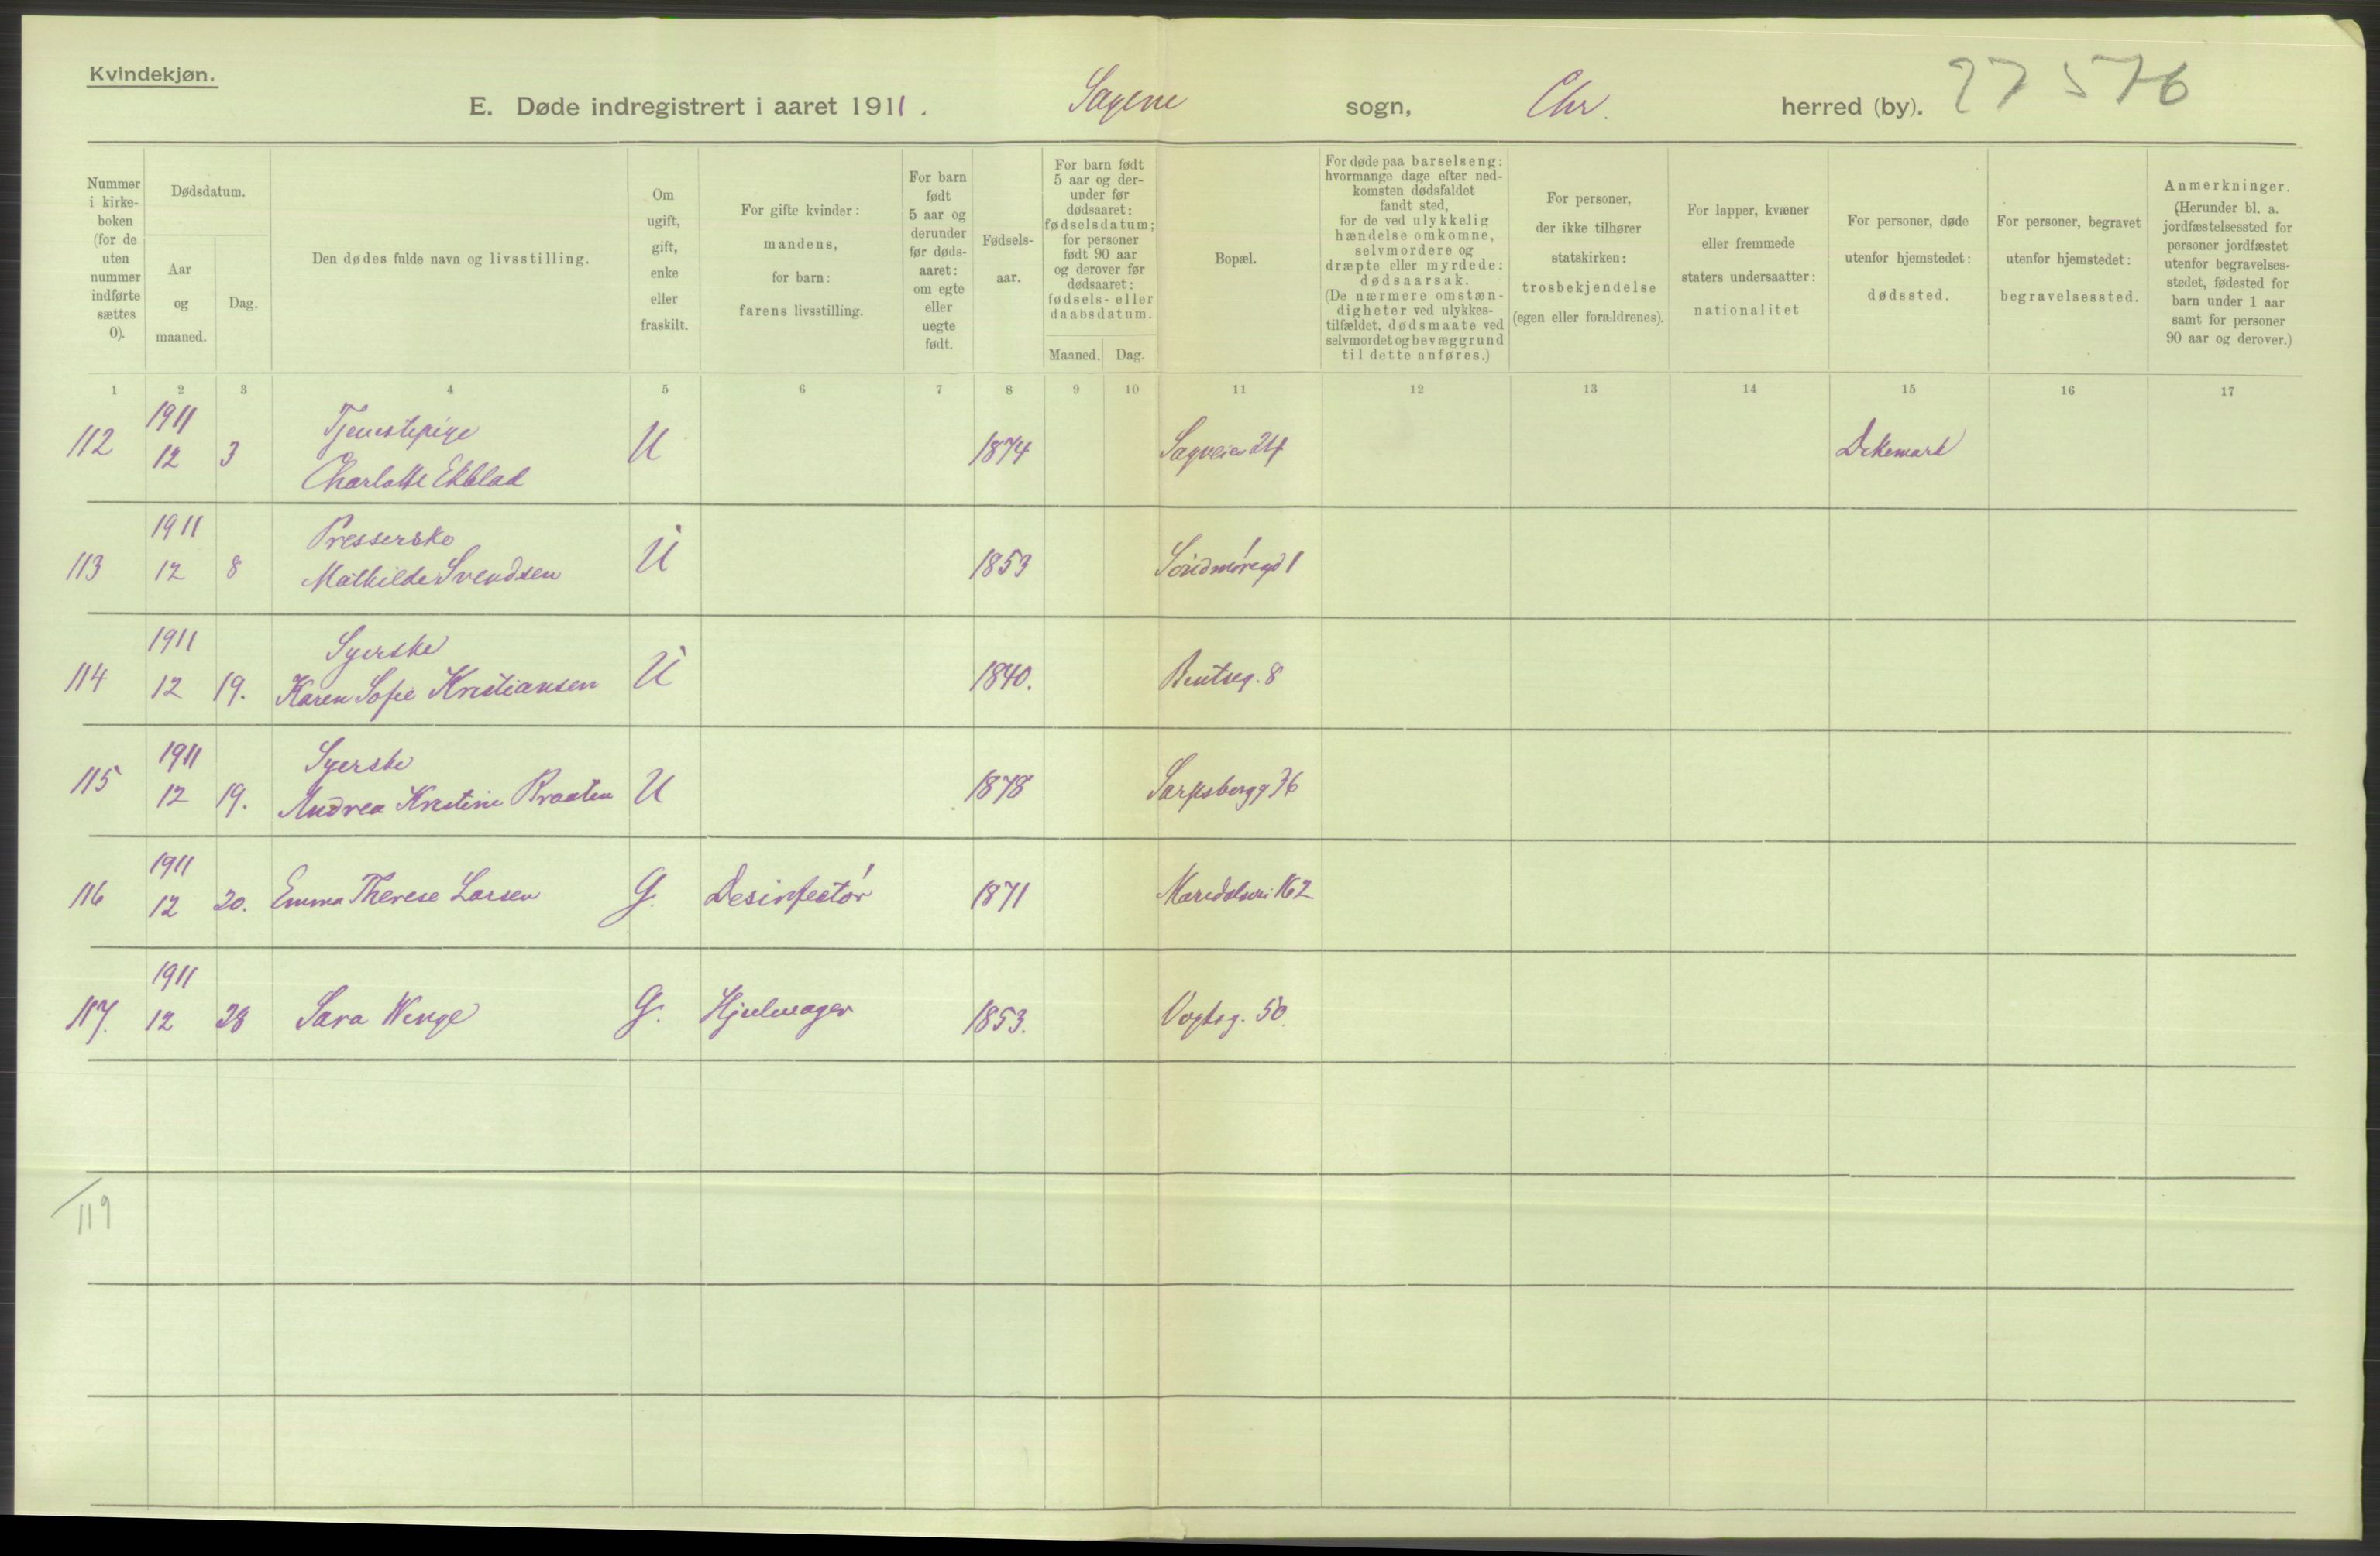 Kvindekjøn.
E. Døde indregistrert i aaret 1911. Sagene sogn, Chr. herred (by). 27 576
Nummer i kirke-boken (for de uten nummer indførte sættes 0).
Dødsdatum.
Aar og maaned.
Dag.
Den dødes fulde navn og livsstilling.
Om ugift, gift, enke eller fraskilt.
For gifte kvinder: mandens, for barn: farens livsstilling.
For barn født 5 aar og derunder før døds-aaret: om egte eller uegte født.
Fødsels-aar.
For barn født 5 aar og der-under før dødsaaret: fødselsdatum; for personer født 90 aar og derover før dødsaaret: fødsels- eller daabsdatum.
Maaned. Dag.
Bopæl.
For døde paa barselseng: hvormange dage efter ned-komsten dødsfaldet fandt sted, for de ved ulykkelig hændelse omkomne, selvmordere og dræpte eller myrdede: dødsaarsak. (De nærmere omstæn-digheter ved ulykkes-tilfældet, dødsmaate ved selvmordet og bevæggrund til dette anføres.)
For personer, der ikke tilhører statskirken: trosbekjendelse (egen eller forældrenes).
For lapper, kvæner eller fremmede staters undersaatter: nationalitet
For personer, døde utenfor hjemstedet: dødssted.
For personer, begravet utenfor hjemstedet: begravelsessted.
Anmerkninger. (Herunder bl. a. jordfæstelsessted for personer jordfæstet utenfor begravelses-stedet, fødested for barn under 1 aar samt for personer 90 aar og derover.)
1 2 3 4 5 6 7 8 9 10 11 12 13 14 15 16 17
1911 Tjenestepige
112 12 3 Charlotte Ekblad U 1874 Sagveien 24 Dikemark
1911 Presserske
113 12 8 Mathilde Svendsen U 1853 Söndmøregd 1
1911 Syerske
114 12 19. Karen Sofie Kristiansen U 1840. Bentseg. 8
1911 Syerske
115 12 19. Andrea Kristine Braaten U 1878 Sarpsborgg 76
1911
116 12 20. Emma Therese Larsen G. Desinfectör 1871 Maridalsvei 162
1911
117. 12 28 Sara Winge G. Hjulmager 1853. Vogtsg. 50.
119